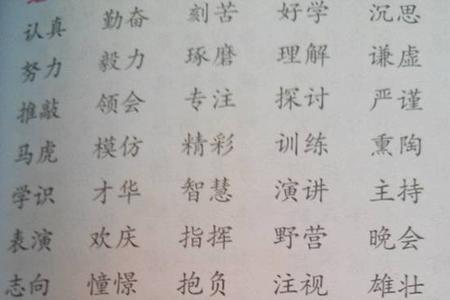 认真 勤奋 刻苦 好学 沉思
努力 毅力 琢磨 理解 谦虚
推敲 领会 专注 探讨 严谨
马虎 模仿 精彩 训练 熏陶
学识 才华 智慧 演讲 主持
表演 欢庆 指挥 野营 晚会
志向 憧憬 抱负 注视 雄壮